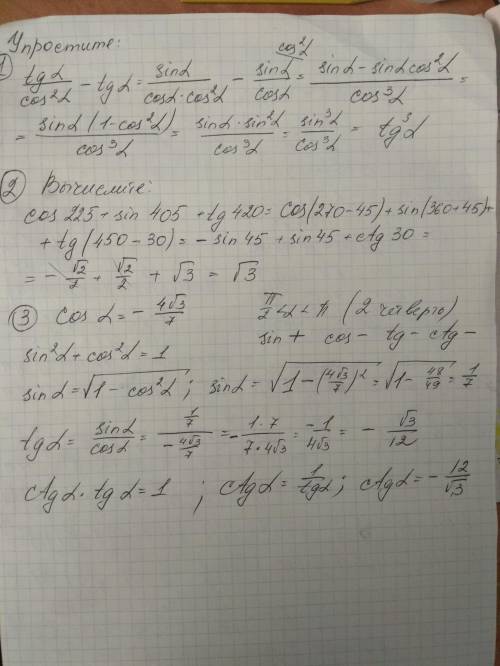 Упростите:
① tgα/cos²α − tgα = sinα/(cosα·cos²α) − sinα/cosα (cos²α = (sinα − sinαcos²α)/cos³α =
= sinα(1−cos²α)/cos³α = sinα·sin²α/cos³α = sin³α/cos³α = tg³α
② Вычислите:
cos 225 + sin 405 + tg 420 = cos(270−45) + sin(360+45) +
+ tg(450−30) = − sin 45 + sin 45 + ctg 30 =
= − √2/2 + √2/2 + √3 = √3
③ cos α = − 4√3/7 π/2 < α < π (2 четверть)
sin + cos − tg − ctg −
sin²α + cos²α = 1
sinα = √(1 − cos²α) ; sinα = √(1 − (4√3/7)²) = √(1 − 48/49) = 1/7
tgα = sinα/cosα = (1/7)/(− 4√3/7) = − 1·7/(7·4√3) = −1/(4√3) = − √3/12
ctgα · tgα = 1 ; ctgα = 1/tgα ; ctgα = − 12/√3